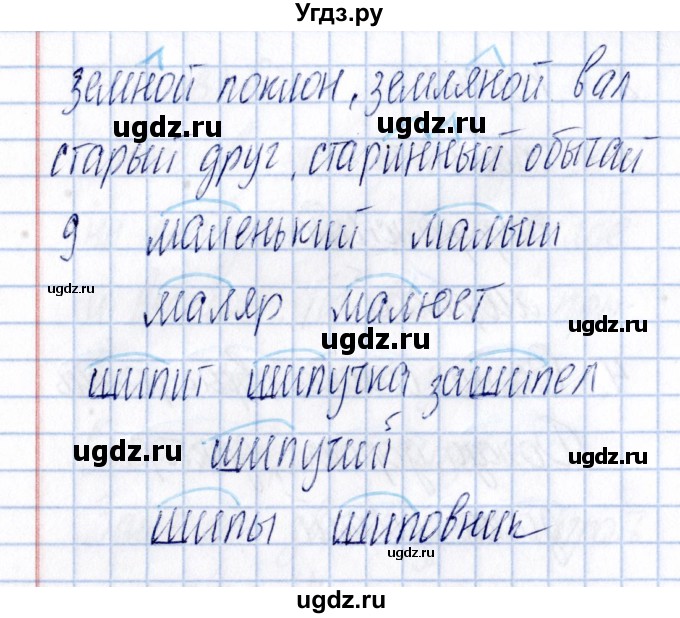 Угдз.ру
земной поклон, земляной вал
ugdz.ru ugdz.ru
старый друг, старинный обычай
9 маленький малыш
ugdz.ru
маляр малюет
ugdz.ru
ugdz.ru
шипит шипучка зашипел
ugdz.ru
шипучий 5
ugdz.ru
шипы шиповник
ugdz.ru
ugdz.ru